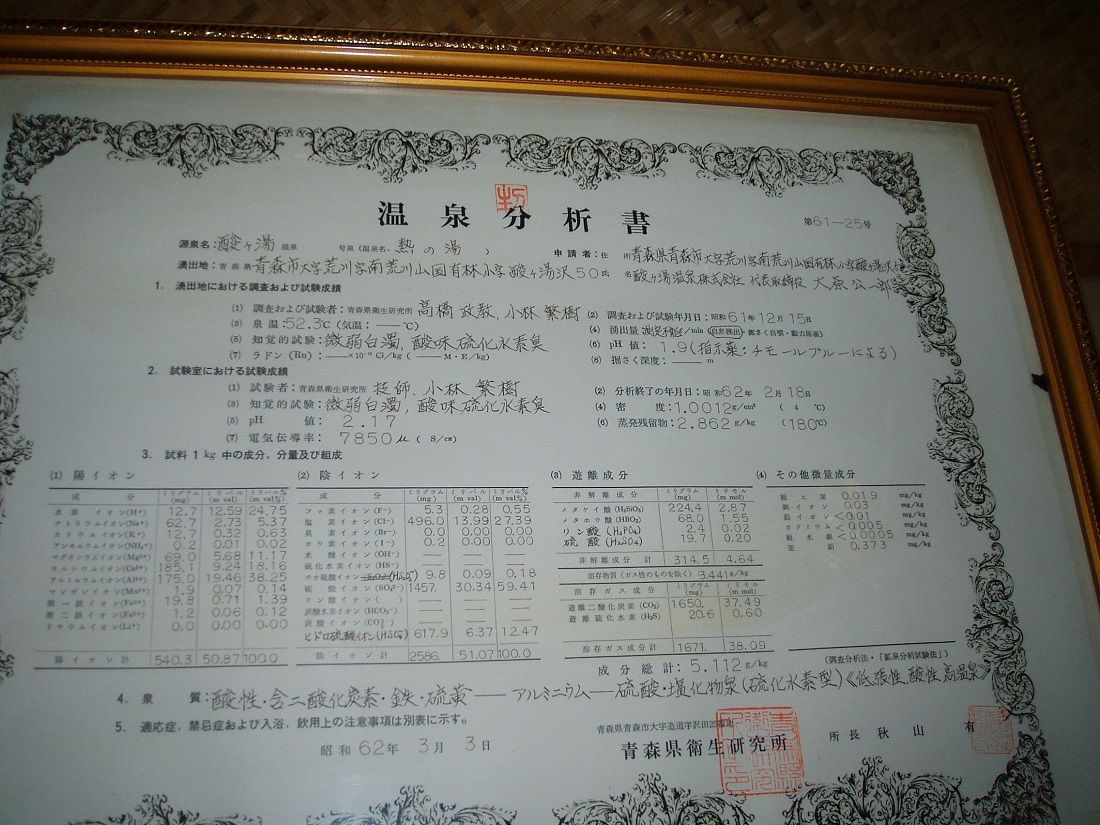 温泉分析書
第61-25号
源泉名：酸ヶ湯 温泉 号泉（温泉名．熱の湯 ）
申請者：住所 青森県青森市大字荒川字南荒川山国有林小字酸ヶ湯沢
湧出地：青森県 青森市大字荒川字南荒川山国有林小字酸ヶ湯沢50
氏名 酸ヶ湯温泉株式会社 代表取締役 大原公一郎
1. 湧出地における調査および試験成績
(1) 調査および試験者：青森県衛生研究所 高橋政教,小林繁樹
(2) 調査および試験年月日：昭和61年12月15日
(3) 泉温：52.3℃（気温：—℃）
(4) 湧出量 測定不能ℓ/min（自然湧出・掘さく自噴・動力揚湯）
(5) 知覚的試験：微弱白濁,酸味 硫化水素臭
(6) pH 値： 1.9（指示薬：チモールブルーによる）
(7) ラドン (Rn)：—×10⁻¹⁰ Ci/kg（ — M・E/kg）
(8) 掘さく深度：— m
2. 試験室における試験成績
(1) 試験者：青森県衛生研究所 技師 小林繁樹
(2) 分析終了の年月日：昭和62年 2月18日
(3) 知覚的試験：微弱白濁,酸味 硫化水素臭
(4) 密 度：1.0012g/cm³ （ 4 ℃）
(5) pH 値： 2.17
(6) 蒸発残留物：2.862g/kg （180℃）
(7) 電気伝導率： 7850μ（ S/cm）
3. 試料 1 kg 中の成分，分量及び組成
(1) 陽イオン
成 分 ミリグラム(mg) ミリバル(m val) ミリバル%(m val%)
水素イオン(H⁺) 12.7 12.59 24.75
ナトリウムイオン(Na⁺) 62.7 2.73 5.37
カリウムイオン(K⁺) 12.7 0.32 0.63
アンモニウムイオン(NH₄⁺) 0.2 0.01 0.02
マグネシウムイオン(Mg²⁺) 69.0 5.68 11.17
カルシウムイオン(Ca²⁺) 185.1 9.24 18.16
アルミニウムイオン(Al³⁺) 175.0 19.46 38.25
マンガンイオン(Mn²⁺) 1.9 0.07 0.14
第一鉄イオン(Fe²⁺) 19.8 0.71 1.39
第二鉄イオン(Fe³⁺) 1.2 0.06 0.12
リチウムイオン(Li⁺) 0.0 0.00 0.00
陽イオン計 540.3 50.87 100.0
(2) 陰イオン
成 分 ミリグラム(mg) ミリバル(m val) ミリバル%(m val%)
フッ素イオン(F⁻) 5.3 0.28 0.55
塩素イオン(Cl⁻) 496.0 13.99 27.39
臭素イオン(Br⁻) 0.0 0.00 0.00
ヨウ素イオン(I⁻) 0.2 0.00 0.00
水酸イオン(OH⁻) — — —
硫化水素イオン(HS⁻) — — —
チオ硫酸イオン 9.8 0.09 0.18
硫酸イオン(SO₄²⁻) 1457. 30.34 59.41
リン酸イオン( — — —
炭酸水素イオン(HCO₃⁻) — — —
炭酸イオン(CO₃²⁻) — — —
ヒドロ硫酸イオン(HSO₄⁻) 617.9 6.37 12.47
陰イオン計 2586. 51.07 100.0
(3) 遊離成分
非解離成分 ミリグラム(mg) ミリモル(m mol)
メタケイ酸(H₂SiO₃) 224.4 2.87
メタホウ酸(HBO₂) 68.0 1.55
リン酸(H₃PO₄) 2.4 0.02
硫酸(H₂SO₄) 19.7 0.20
非解離成分計 314.5 4.64
溶存物質（ガス性のものを除く）3.441g/kg
溶存ガス成分 ミリグラム(mg) ミリモル(m mol)
遊離二酸化炭素(CO₂) 1650. 37.49
遊離硫化水素(H₂S) 20.6 0.60
溶存ガス成分計 1671. 38.09
成分総計：5.112g/kg
(4) その他微量成分
総ヒ素 0.019 mg/kg
銅イオン 0.03 mg/kg
鉛イオン <0.01 mg/kg
カドミウム <0.005 mg/kg
総水銀 <0.0005 mg/kg
亜鉛 0.373 mg/kg
(調査分析法・「鉱泉分析試験法」)
4. 泉 質：酸性・含二酸化炭素・鉄・硫黄—アルミニウム—硫酸・塩化物泉（硫化水素型）《低張性酸性高温泉》
5. 適応症，禁忌症および入浴，飲用上の注意事項は別表に示す。
昭和62年 3月 3日
青森県青森市大字造道字沢田
青森県衛生研究所
所長 秋山 有